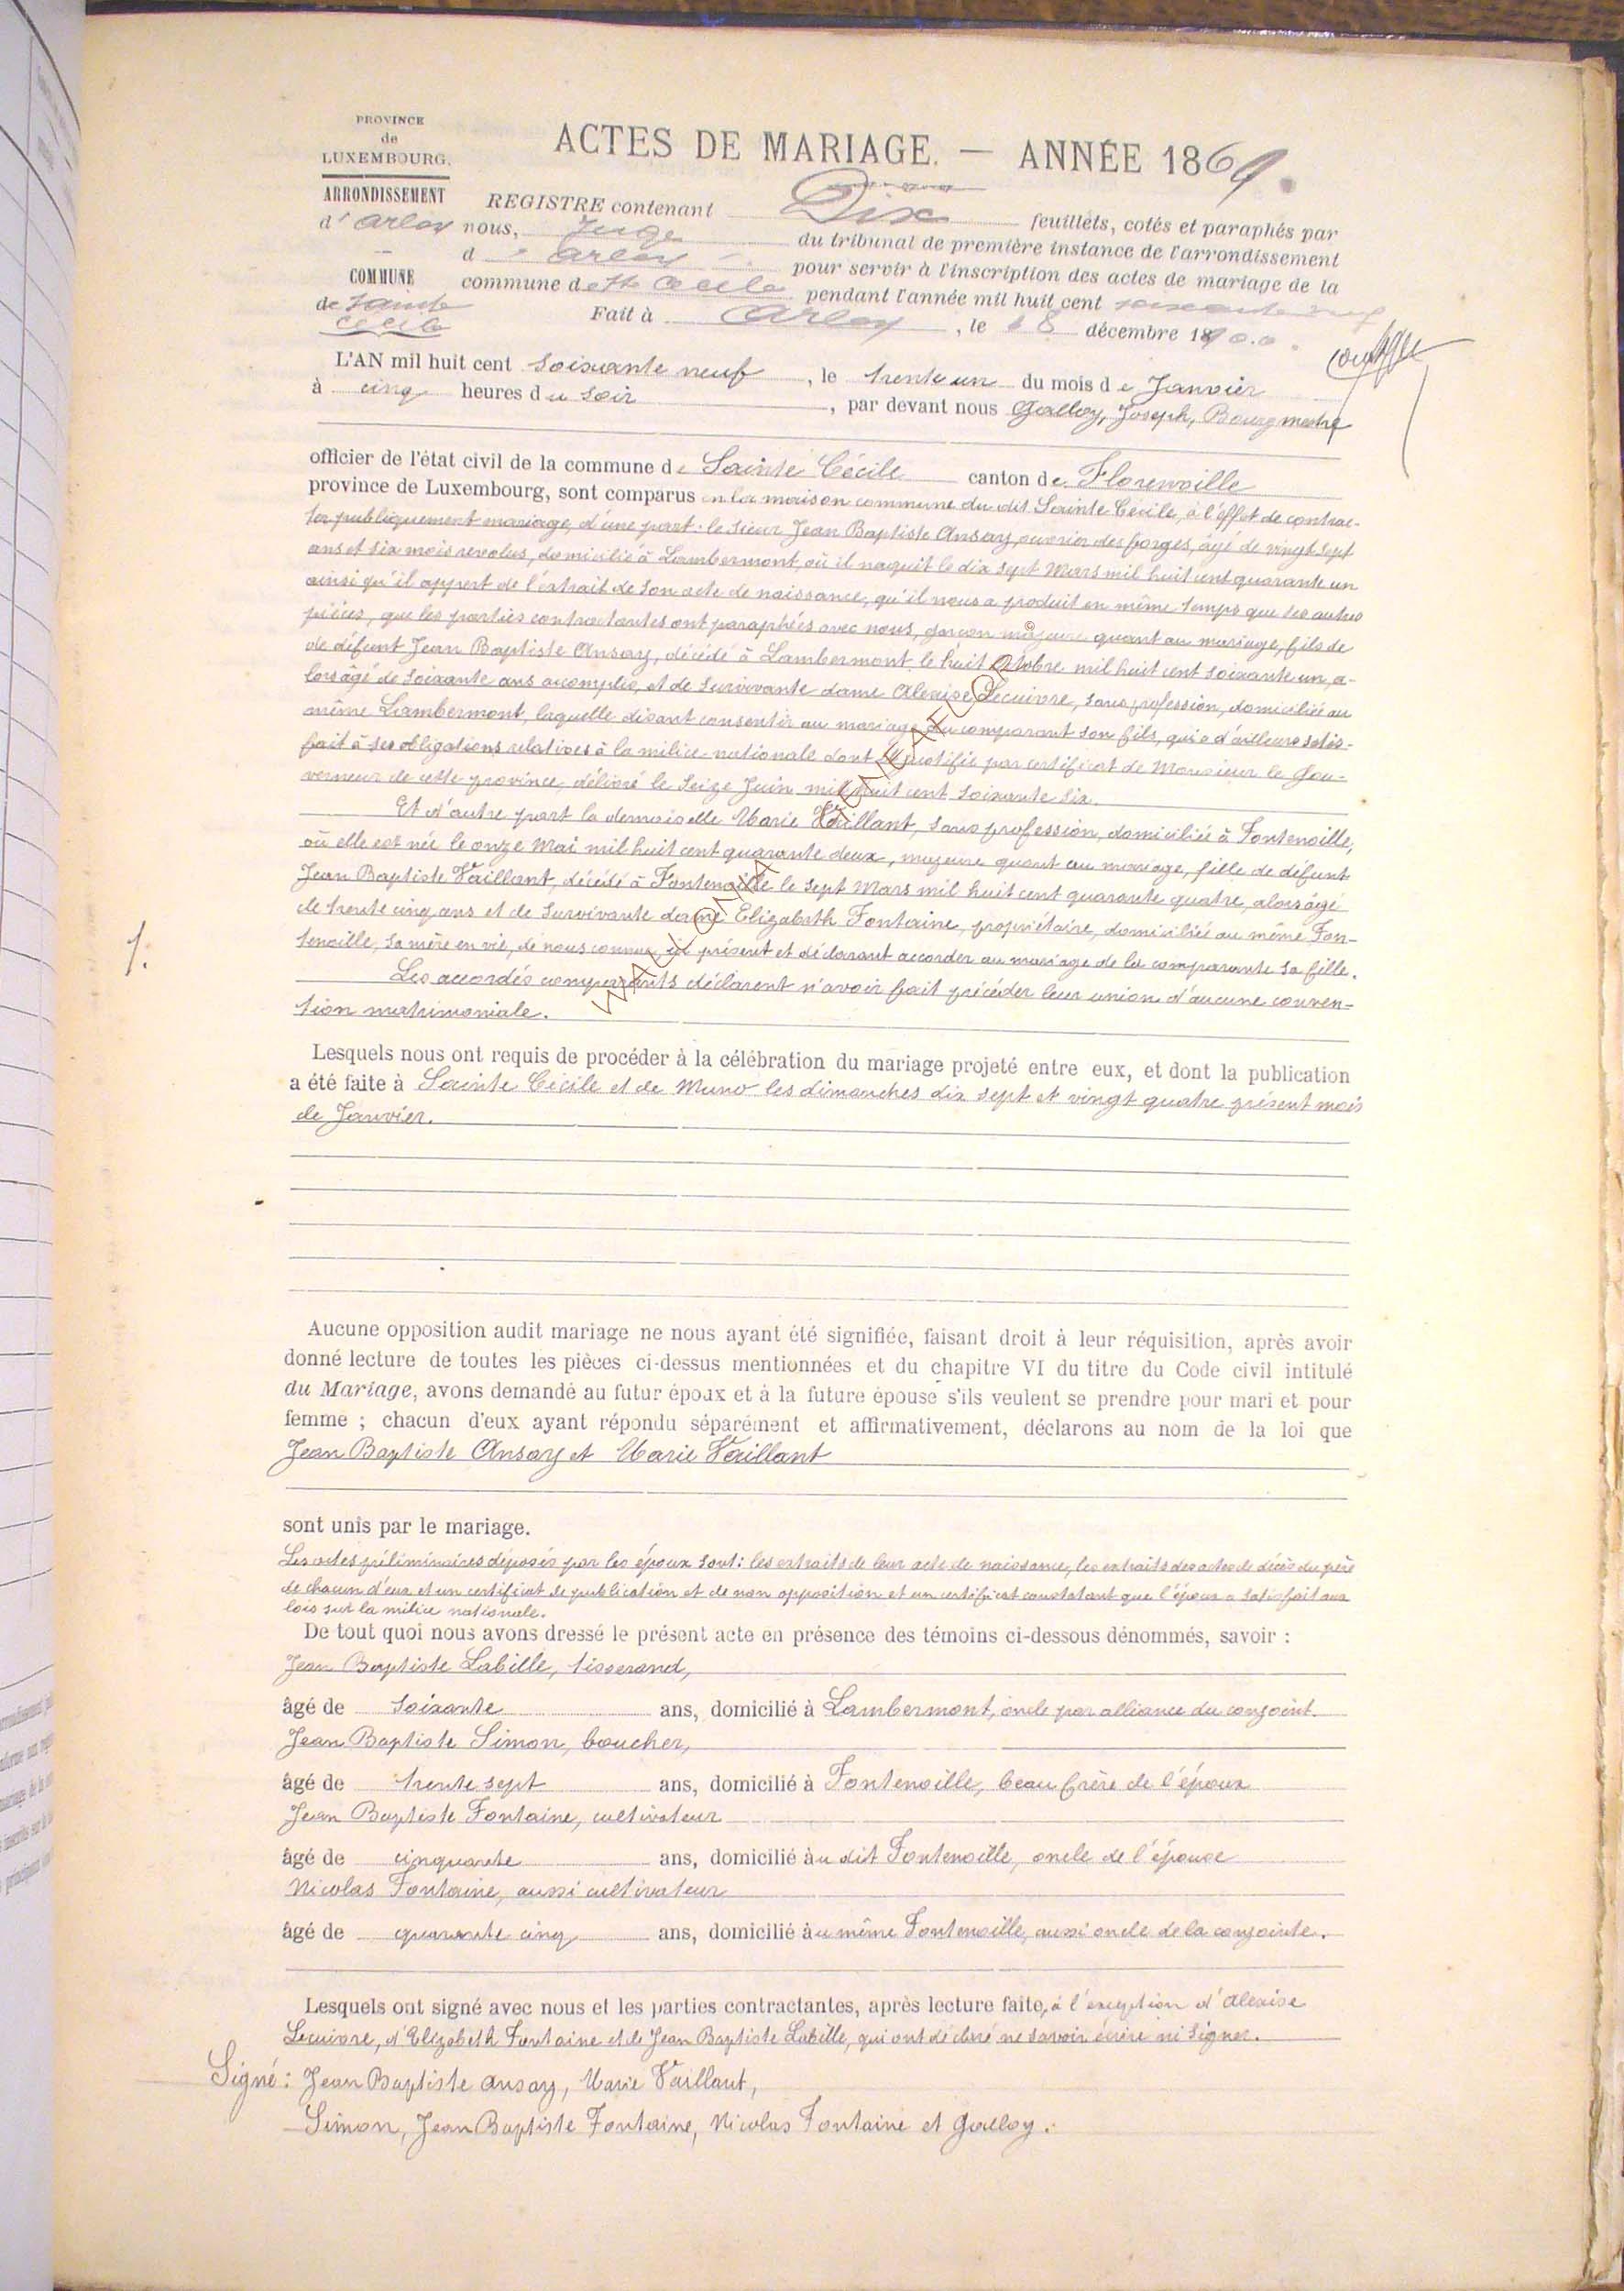 PROVINCE
de
LUXEMBOURG.
ARRONDISSEMENT
d'Arlon
COMMUNE
de Sainte
Cécile
ACTES DE MARIAGE. — ANNÉE 1869.
REGISTRE contenant Dix feuillets, cotés et paraphés par
nous, Juge du tribunal de première instance de l'arrondissement
d'Arlon pour servir à l'inscription des actes de mariage de la
commune de Ste Cécile pendant l'année mil huit cent soixante neuf
Fait à Arlon, le 18 décembre 1900.
L'AN mil huit cent soixante neuf, le trente un du mois de Janvier
à cinq heures du soir, par devant nous Galloy, Joseph, Bourgmestre
officier de l'état civil de la commune de Sainte Cécile canton de Florenville
province de Luxembourg, sont comparus en la maison commune du dit Sainte Cécile, à l'effet de contrac-
ter publiquement mariage, d'une part: le sieur Jean Baptiste Ansay, ouvrier des forges, âgé de vingt sept
ans et six mois revolus, domicilié à Lambermont, où il naquit le dix sept Mars mil huit cent quarante un
ainsi qu'il appert de l'extrait de son acte de naissance, qu'il nous a produit en même temps que les autres
pièces, que les parties contractantes ont paraphées avec nous, garçon majeure quant au mariage, fils de
de défunt Jean Baptiste Ansay, décédé à Lambermont le huit Octobre mil huit cent soixante un, a-
lors âgé de soixante ans accomplis, et de survivante dame Alexise Lecuivre, sans profession, domiciliée au
même Lambermont, laquelle disant consentir au mariage du comparant son fils, qui a d'ailleurs satis-
fait à ses obligations relatives à la milice nationale dont il justifie par certificat de Monsieur le Gou-
verneur de cette province, délivré le seize Juin mil huit cent soixante six.
Et d'autre part la demoiselle Marie Vaillant, sans profession, domiciliée à Fontenoille,
où elle est née le onze Mai mil huit cent quarante deux, majeure quant au mariage, fille de défunt
Jean Baptiste Vaillant, décédé à Fontenoille le sept Mars mil huit cent quarante quatre, alors âgé
de trente cinq ans et de survivante dame Elizabeth Fontaine, propriétaire, domiciliée au même Fon-
tenoille, sa mère en vie, de nous connue, ici présent et déclarant accorder au mariage de la comparante sa fille.
Les accordés comparants déclarent n'avoir fait précéder leur union d'aucune conven-
tion matrimoniale.
1.
Lesquels nous ont requis de procéder à la célébration du mariage projeté entre eux, et dont la publication
a été faite à Sainte Cécile et de Muno les dimanches dix sept et vingt quatre présent mois
de Janvier.
Aucune opposition audit mariage ne nous ayant été signifiée, faisant droit à leur réquisition, après avoir
donné lecture de toutes les pièces ci-dessus mentionnées et du chapitre VI du titre du Code civil intitulé
du Mariage, avons demandé au futur époux et à la future épouse s'ils veulent se prendre pour mari et pour
femme ; chacun d'eux ayant répondu séparément et affirmativement, déclarons au nom de la loi que
Jean Baptiste Ansay et Marie Vaillant
sont unis par le mariage.
Les actes préliminaires déposés par les époux sont: les extraits de leur acte de naissance, les extraits des actes de décès du père
de chacun d'eux et un certificat de publication et de non opposition et un certificat constatant que l'époux a satisfait aux
lois sur la milice nationale.
De tout quoi nous avons dressé le présent acte en présence des témoins ci-dessous dénommés, savoir :
Jean Baptiste Labille, tisserand,
âgé de soixante ans, domicilié à Lambermont, oncle par alliance du conjoint.
Jean Baptiste Simon, boucher,
âgé de trente sept ans, domicilié à Fontenoille, beau frère de l'époux
Jean Baptiste Fontaine, cultivateur
âgé de cinquante ans, domicilié au dit Fontenoille, oncle de l'épouse
Nicolas Fontaine, aussi cultivateur
âgé de quarante cinq ans, domicilié au même Fontenoille, aussi oncle de la conjointe.
Lesquels ont signé avec nous et les parties contractantes, après lecture faite, à l'exception d'Alexise
Lecuivre, d'Elizabeth Fontaine et de Jean Baptiste Labille, qui ont déclaré ne savoir écrire ni signer.
Signé: Jean Baptiste Ansay, Marie Vaillant,
Simon, Jean Baptiste Fontaine, Nicolas Fontaine et Galloy.